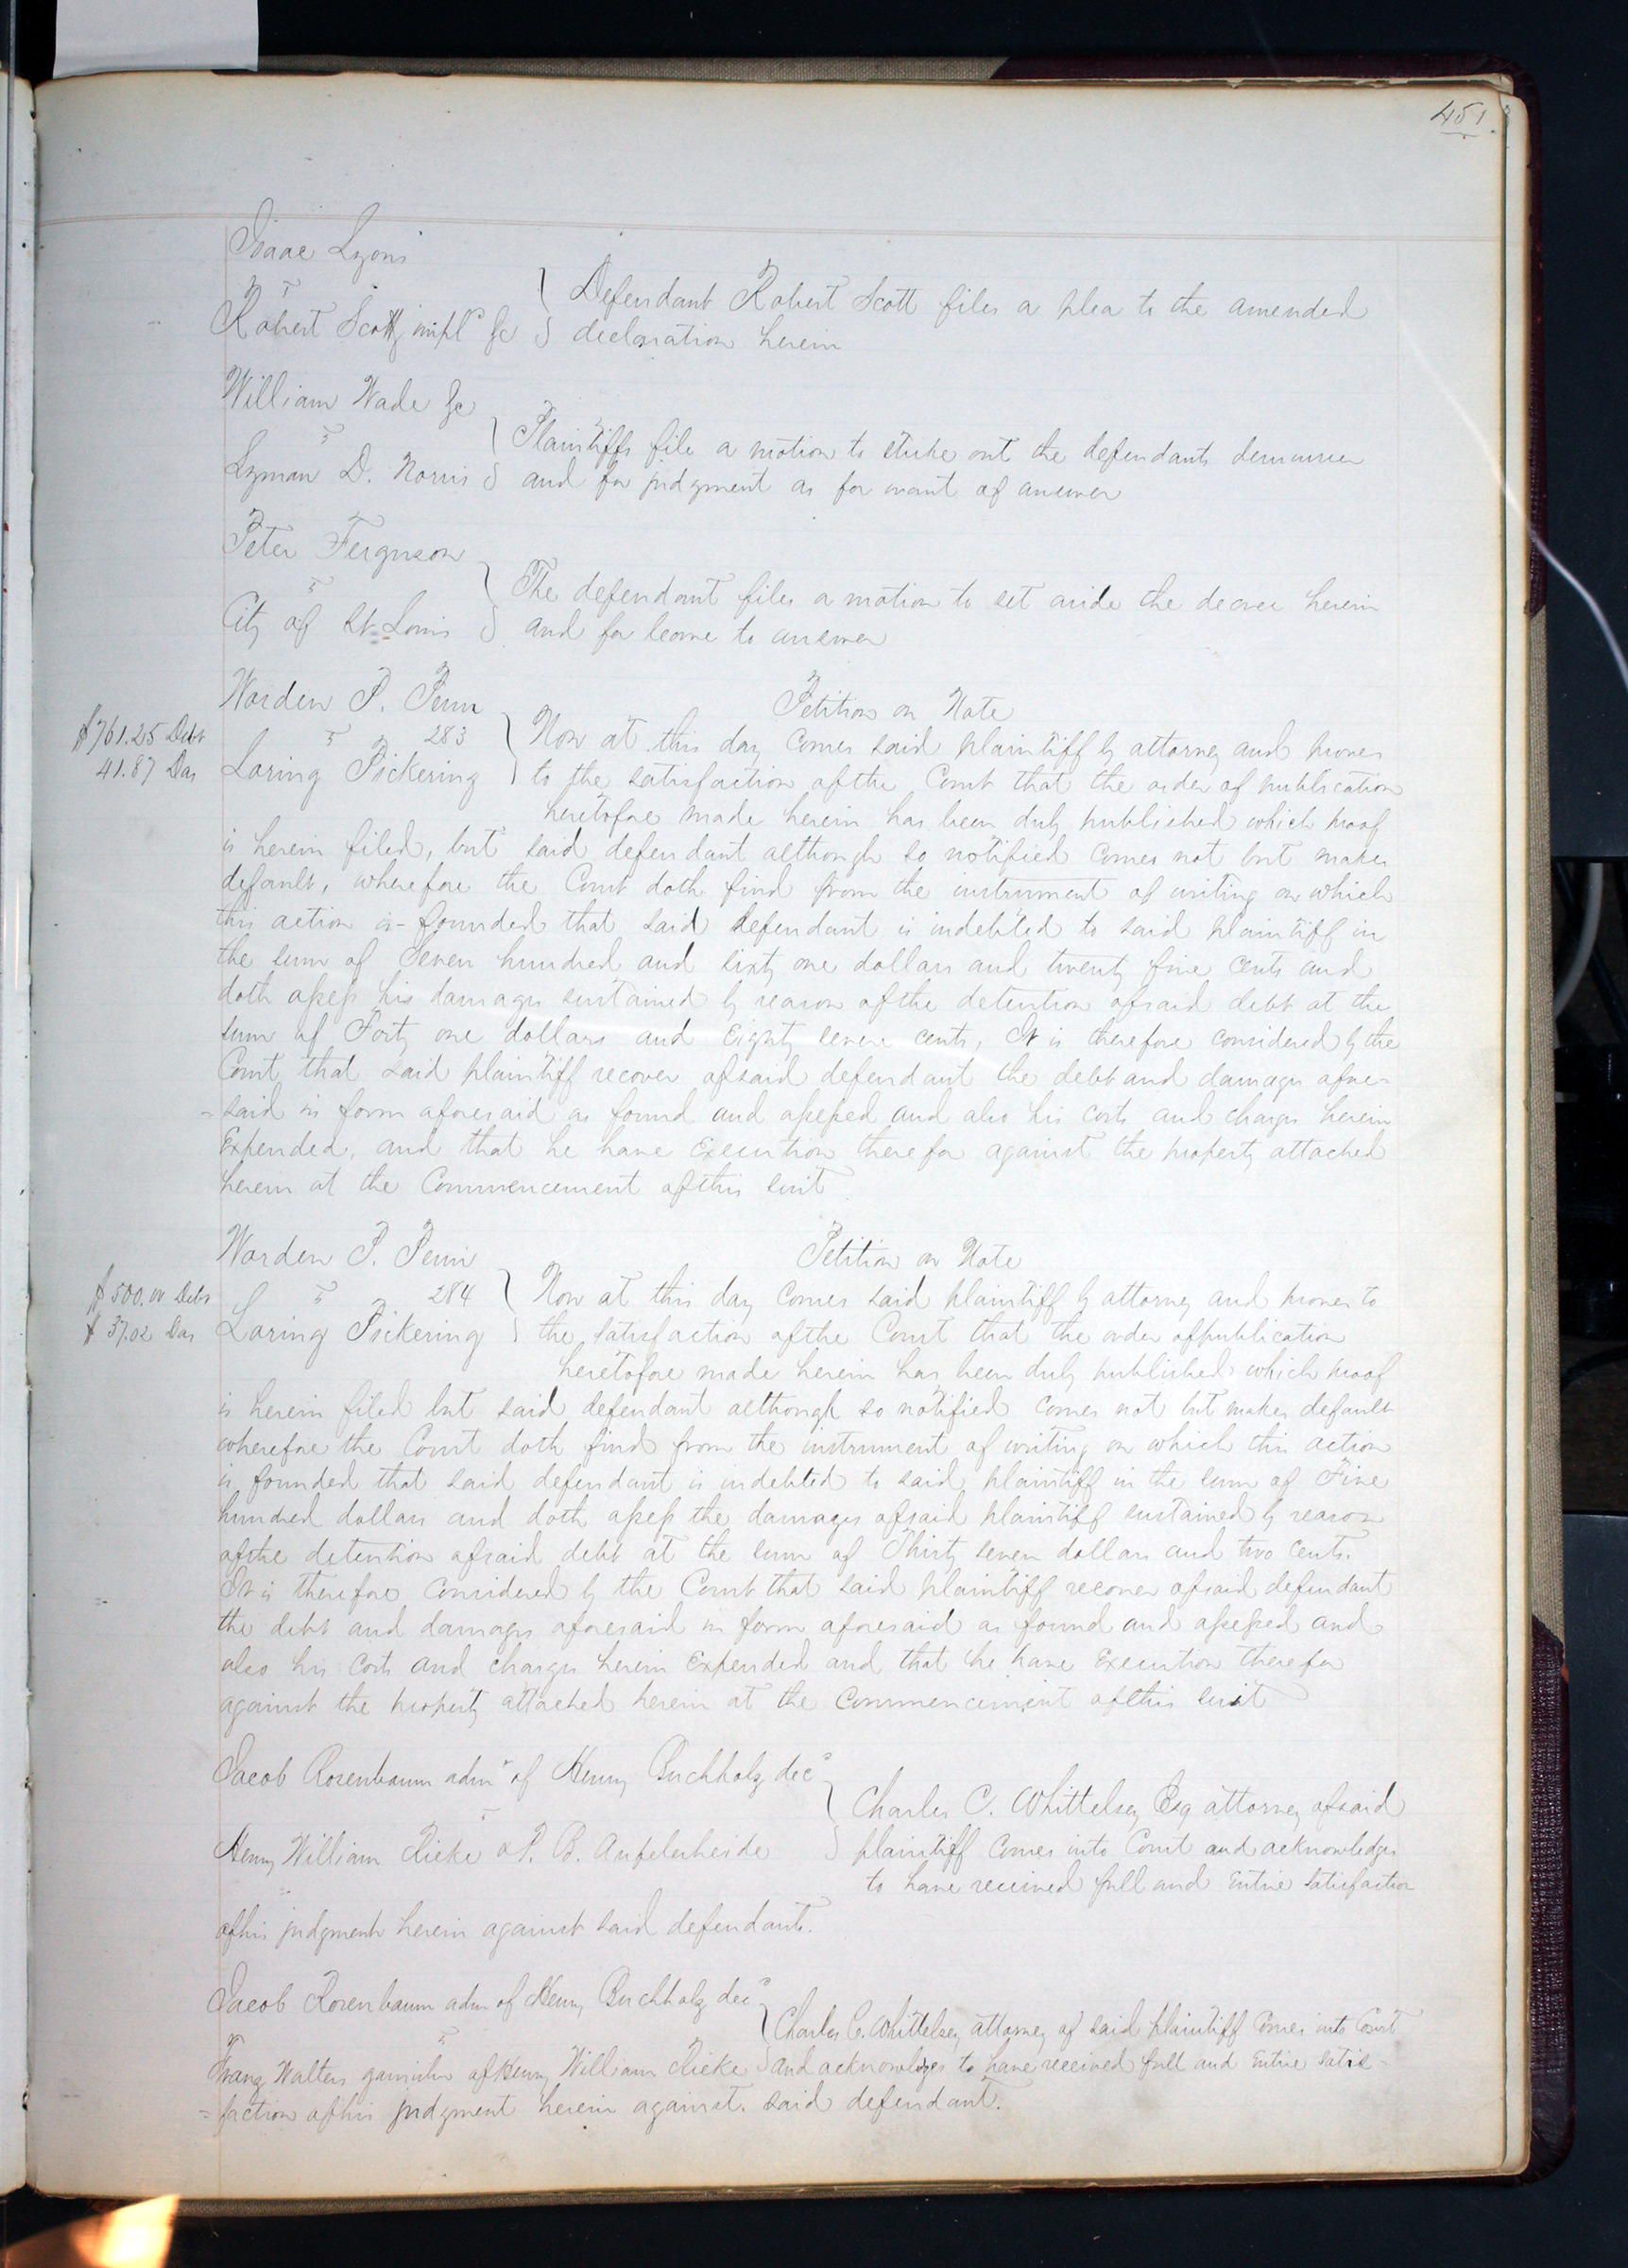 451.
Isaac Lyons
vs
Robert Scott, impl^d &c } Defendant Robert Scott files a plea to the amended
declaration herein
William Wade &c
vs
Lyman D. Norris } Plaintiffs file a motion to strike out the defendants demurrer
and for judgment as for want of answer
Peter Ferguson
vs
City of St. Louis } The defendant files a motion to set aside the decree herein
and for leave to answer
Warden P. Penn
vs 283
Loring Pickering
$761.25 Debt
41.87 Das
Petition on Note
Now at this day comes said plaintiff by attorney and proves
to the satisfaction of the Court that the order of publication
heretofore made herein has been duly published which proof
is herein filed, but said defendant although so notified comes not but makes
default, wherefore the Court doth find from the instrument of writing on which
this action is founded that said defendant is indebted to said plaintiff in
the sum of Seven hundred and sixty one dollars and twenty five cents and
doth assess his damages sustained by reason of the detention of said debt at the
sum of Forty one dollars and Eighty seven cents, It is therefore considered by the
Court that said plaintiff recover of said defendant the debt and damages afore=
=said in form aforesaid as found and assessed and also his costs and charges herein
Expended, and that he have Execution therefor against the property attached
herein at the Commencement of this suit
Warden P. Penn
vs 284
Loring Pickering
$500.00 Debt
$37.02 Das
Petition on Note
Now at this day comes said plaintiff by attorney and proves to
the satisfaction of the Court that the order of publication
heretofore made herein has been duly published which proof
is herein filed but said defendant although so notified comes not but makes default
wherefore the Court doth find from the instrument of writing on which this action
is founded that said defendant is indebted to said plaintiff in the sum of Five
hundred dollars and doth assess the damages of said plaintiff sustained by reason
of the detention of said debt at the sum of Thirty seven dollars and two cents.
It is therefore considered by the Court that said plaintiff recover of said defendant
the debt and damages aforesaid in form aforesaid as found and assessed and
also his costs and charges herein Expended and that he have Execution therefor
against the property attached herein at the commencement of this suit
Jacob Rosenbaum adm^r of Henry Buchholz dec^d
vs
Henry William Rieke & P. B. Aufderheide
Charles C. Whittelsey Esq attorney of said
plaintiff comes into Court and acknowledges
to have received full and entire satisfaction
of his judgment herein against said defendants.
Jacob Rosenbaum adm of Henry Buchholz dec^d
vs
Franz Walters garnishee of Henry William Rieke
Charles C. Whittelsey attorney of said plaintiff comes into Court
and acknowledges to have received full and entire satis=
=faction of his judgment herein against said defendant.